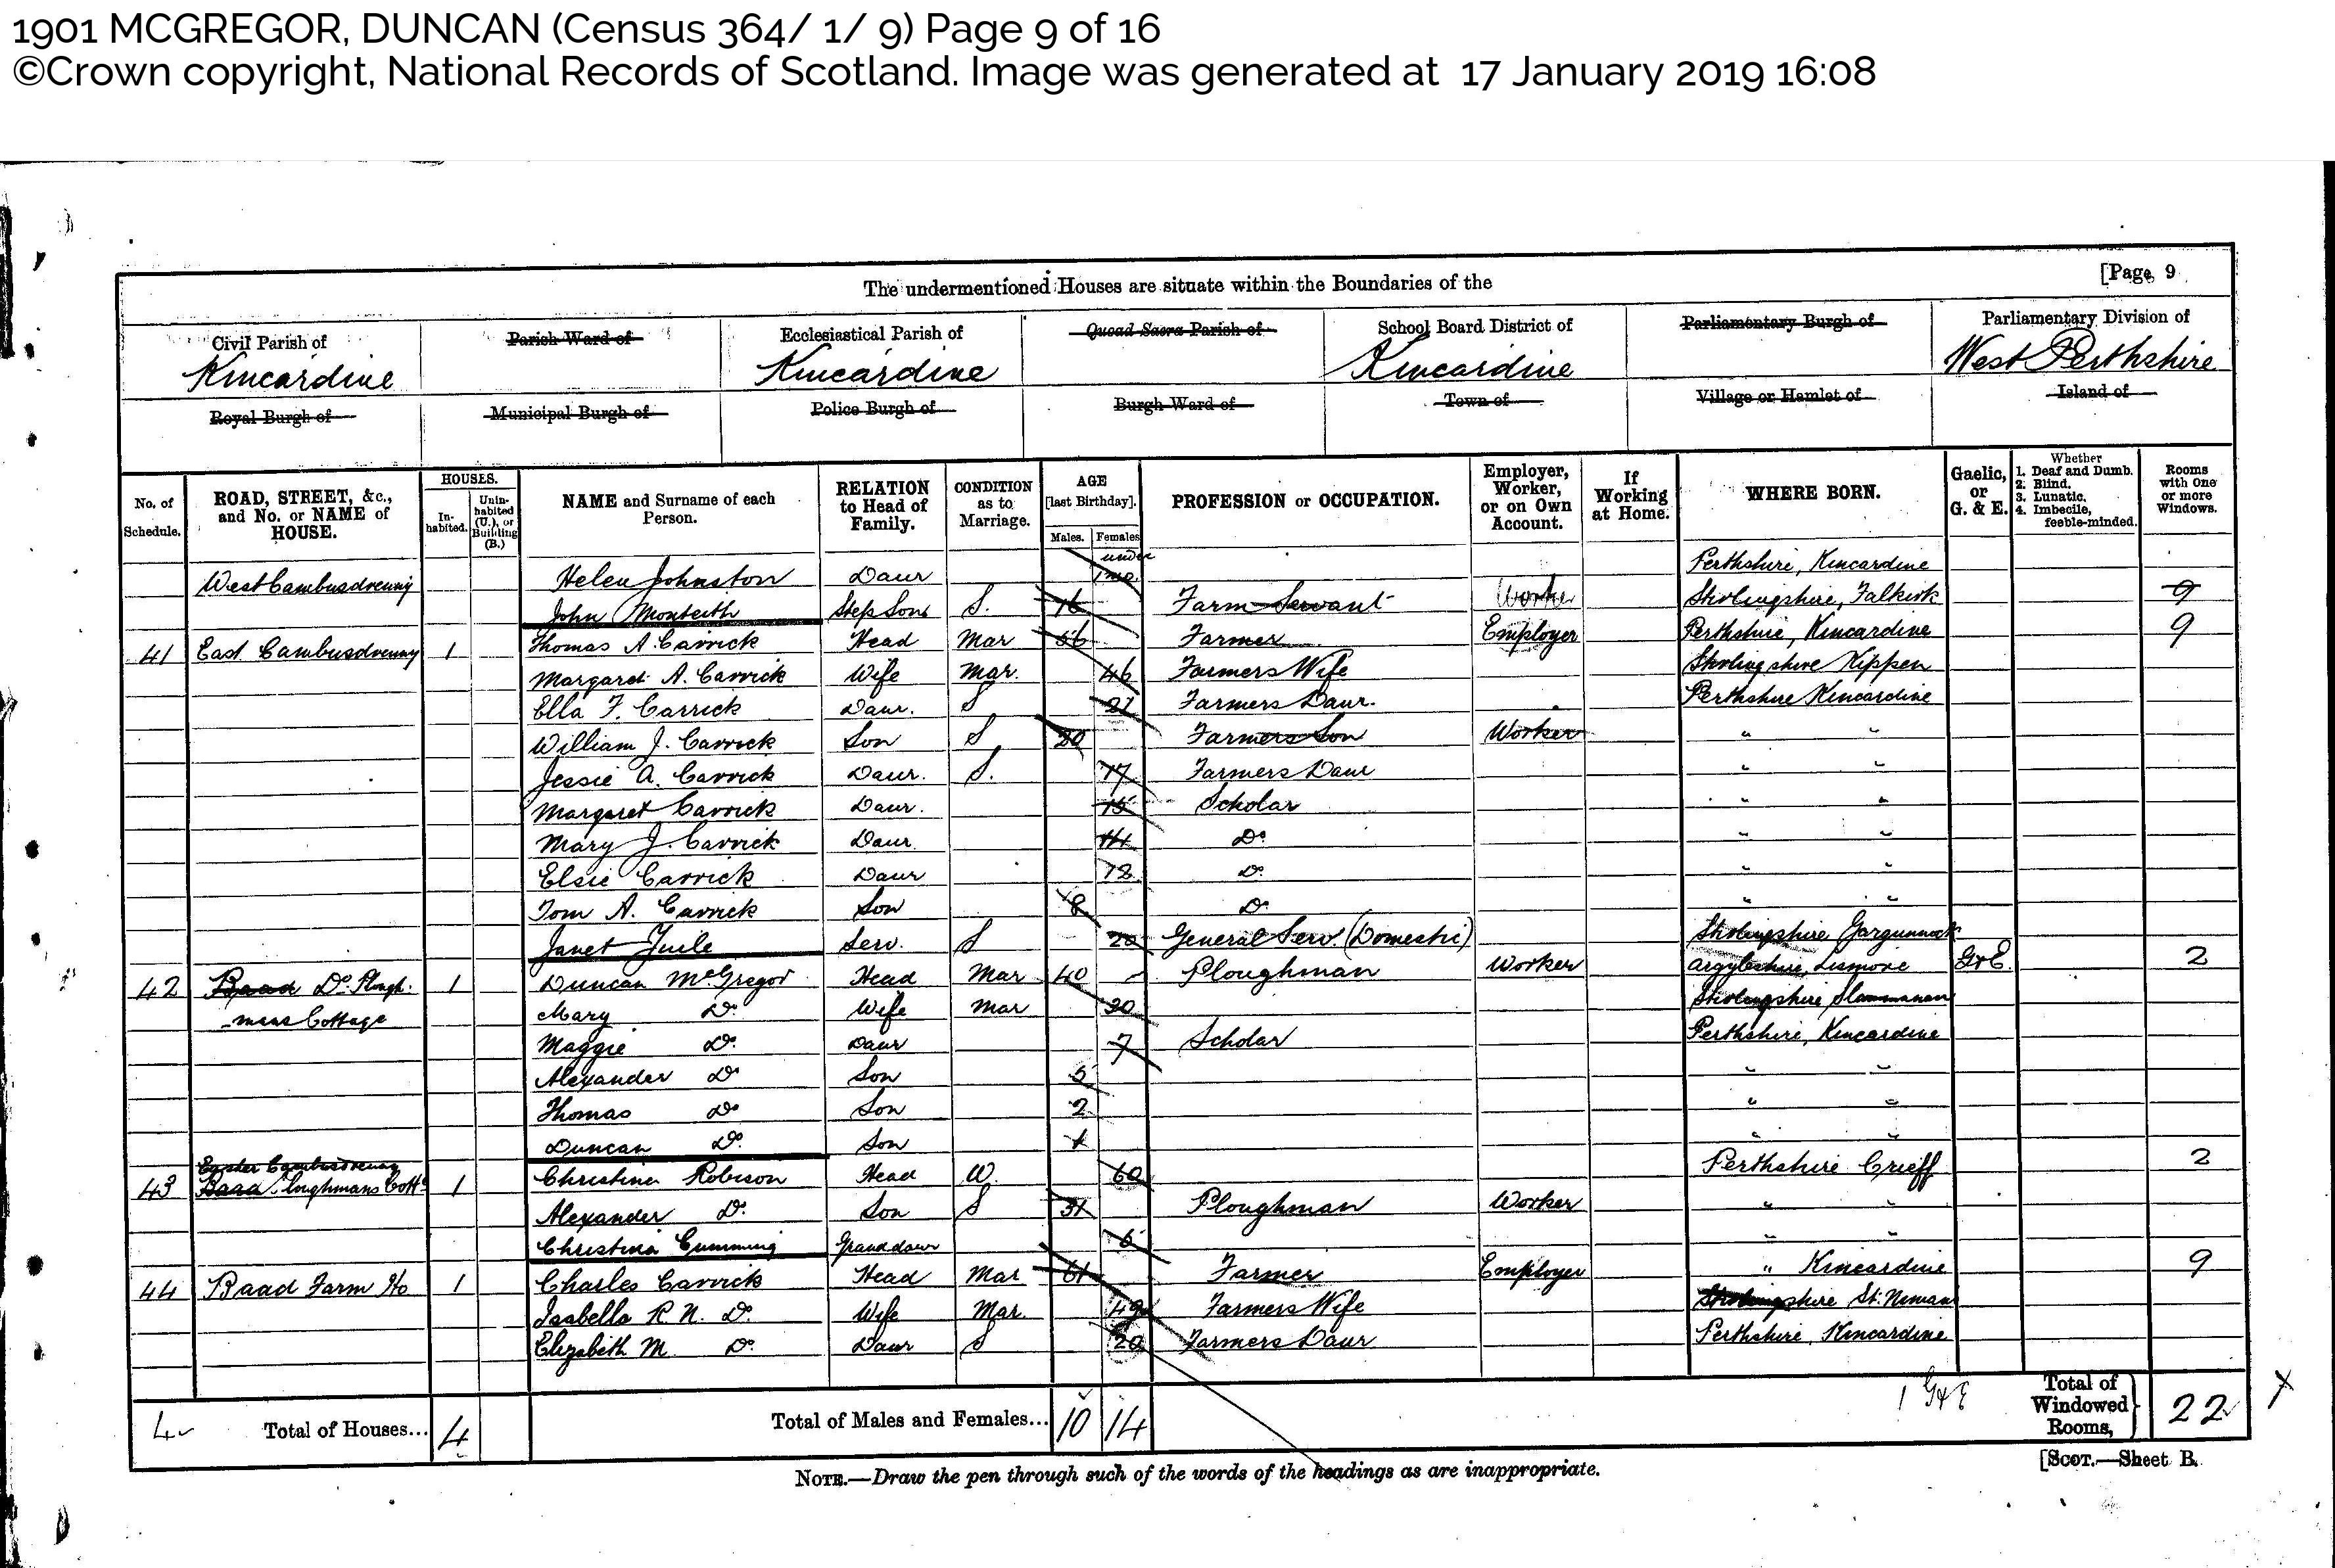 1901 MCGREGOR, DUNCAN (Census 364/ 1/ 9) Page 9 of 16
©Crown copyright, National Records of Scotland. Image was generated at 17 January 2019 16:08
[Page 9
The undermentioned Houses are situate within the Boundaries of the
Civil Parish of Parish Ward of Ecclesiastical Parish of Quoad Sacra Parish of School Board District of Parliamentary Burgh of Parliamentary Division of
Kincardine Kincardine Kincardine West Perthshire
Royal Burgh of Municipal Burgh of Police Burgh of Burgh Ward of Town of Village or Hamlet of Island of
No. of Schedule. ROAD, STREET, &c., and No. or NAME of HOUSE. HOUSES. In-habited. Unin-habited (U.), or Building (B.) NAME and Surname of each Person. RELATION to Head of Family. CONDITION as to Marriage. AGE [last Birthday]. Males. Females PROFESSION or OCCUPATION. Employer, Worker, or on Own Account. If Working at Home. WHERE BORN. Gaelic, or G. & E. Whether 1. Deaf and Dumb. 2. Blind. 3. Lunatic. 4. Imbecile, feeble-minded. Rooms with One or more Windows.
West Cambusdrenny Helen Johnston Daur under 1 mo. Perthshire, Kincardine
John Monteith Step Son S. 16 Farm Servant Worker Stirlingshire, Falkirk 9
41 East Cambusdrenny 1 Thomas A. Carrick Head Mar 56 Farmer Employer Perthshire, Kincardine 9
Margaret A. Carrick Wife Mar. 46 Farmers Wife Stirlingshire Kippen
Ella F. Carrick Daur. S 21 Farmers Daur. Perthshire Kincardine
William J. Carrick Son S 20 Farmers Son Worker " "
Jessie A. Carrick Daur. S. 17 Farmers Daur " "
Margaret Carrick Daur. 15 Scholar " "
Mary J. Carrick Daur. 14 Do " "
Elsie Carrick Daur 12 Do " "
Tom A. Carrick Son 8 Do " "
Janet Zuile Serv. S 20 General Serv. (Domestic) Stirlingshire Gargunnock
42 Baad Do Plough- 1 Duncan McGregor Head Mar 40 Ploughman Worker Argyleshire, Lismore G&E. 2
mans Cottage Mary Do Wife Mar 30 Stirlingshire Slammanan
Maggie Do Daur 7 Scholar Perthshire, Kincardine
Alexander Do Son 5 " "
Thomas Do Son 2 " "
Duncan Do Son 1 " "
Easter Cambusdrenny
43 Baad Ploughmans Cottg 1 Christina Robison Head W. 60 Perthshire Crieff 2
Alexander Do Son S 31 Ploughman Worker " "
Christina Cumming Granddaur 6 " "
44 Baad Farm Ho 1 Charles Carrick Head Mar 61 Farmer Employer " Kincardine 9
Isabella R. N. Do Wife Mar. 49 Farmers Wife Stirlingshire St. Ninians
Elizabeth M. Do Daur S 20 Farmers Daur Perthshire, Kincardine
4 Total of Houses... 4 Total of Males and Females... 10 14 1 G&E Total of Windowed Rooms, 22
NOTE.—Draw the pen through such of the words of the headings as are inappropriate.
[SCOT.—Sheet B.